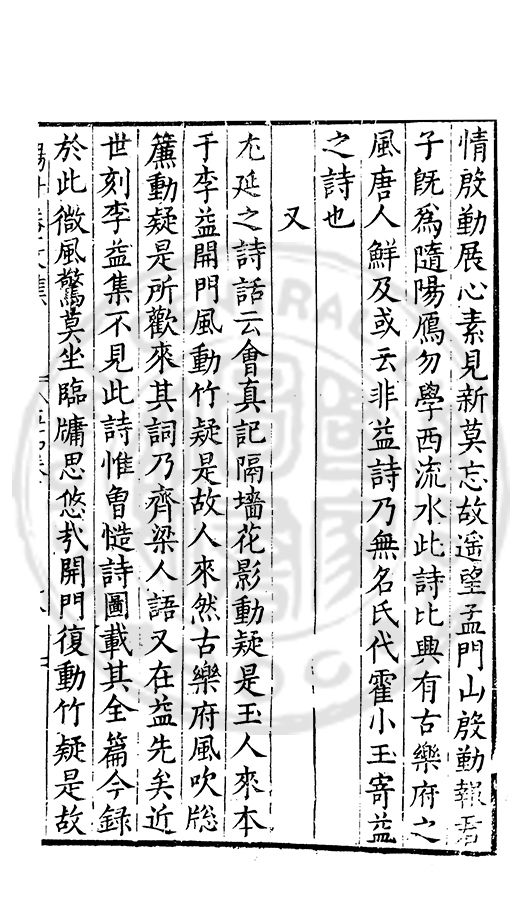 情慇勤展心素見新莫忘故遥望孟門山慇勤報君
子旣爲隨陽鴈勿學西流水此詩比興有古樂府之
風唐人鮮及或云非益詩乃無名氏代霍小玉寄益
之詩也
又
尤延之詩話云會真記隔墻花影動疑是玉人來本
于李益開門風動竹疑是故人來然古樂府風吹牎
簾動疑是所歡來其詞乃齊梁人語又在益先矣近
世刻李益集不見此詩惟曾慥詩圖載其全篇今録
於此微風驚莫坐臨牖思悠㢤開門復動竹疑是故